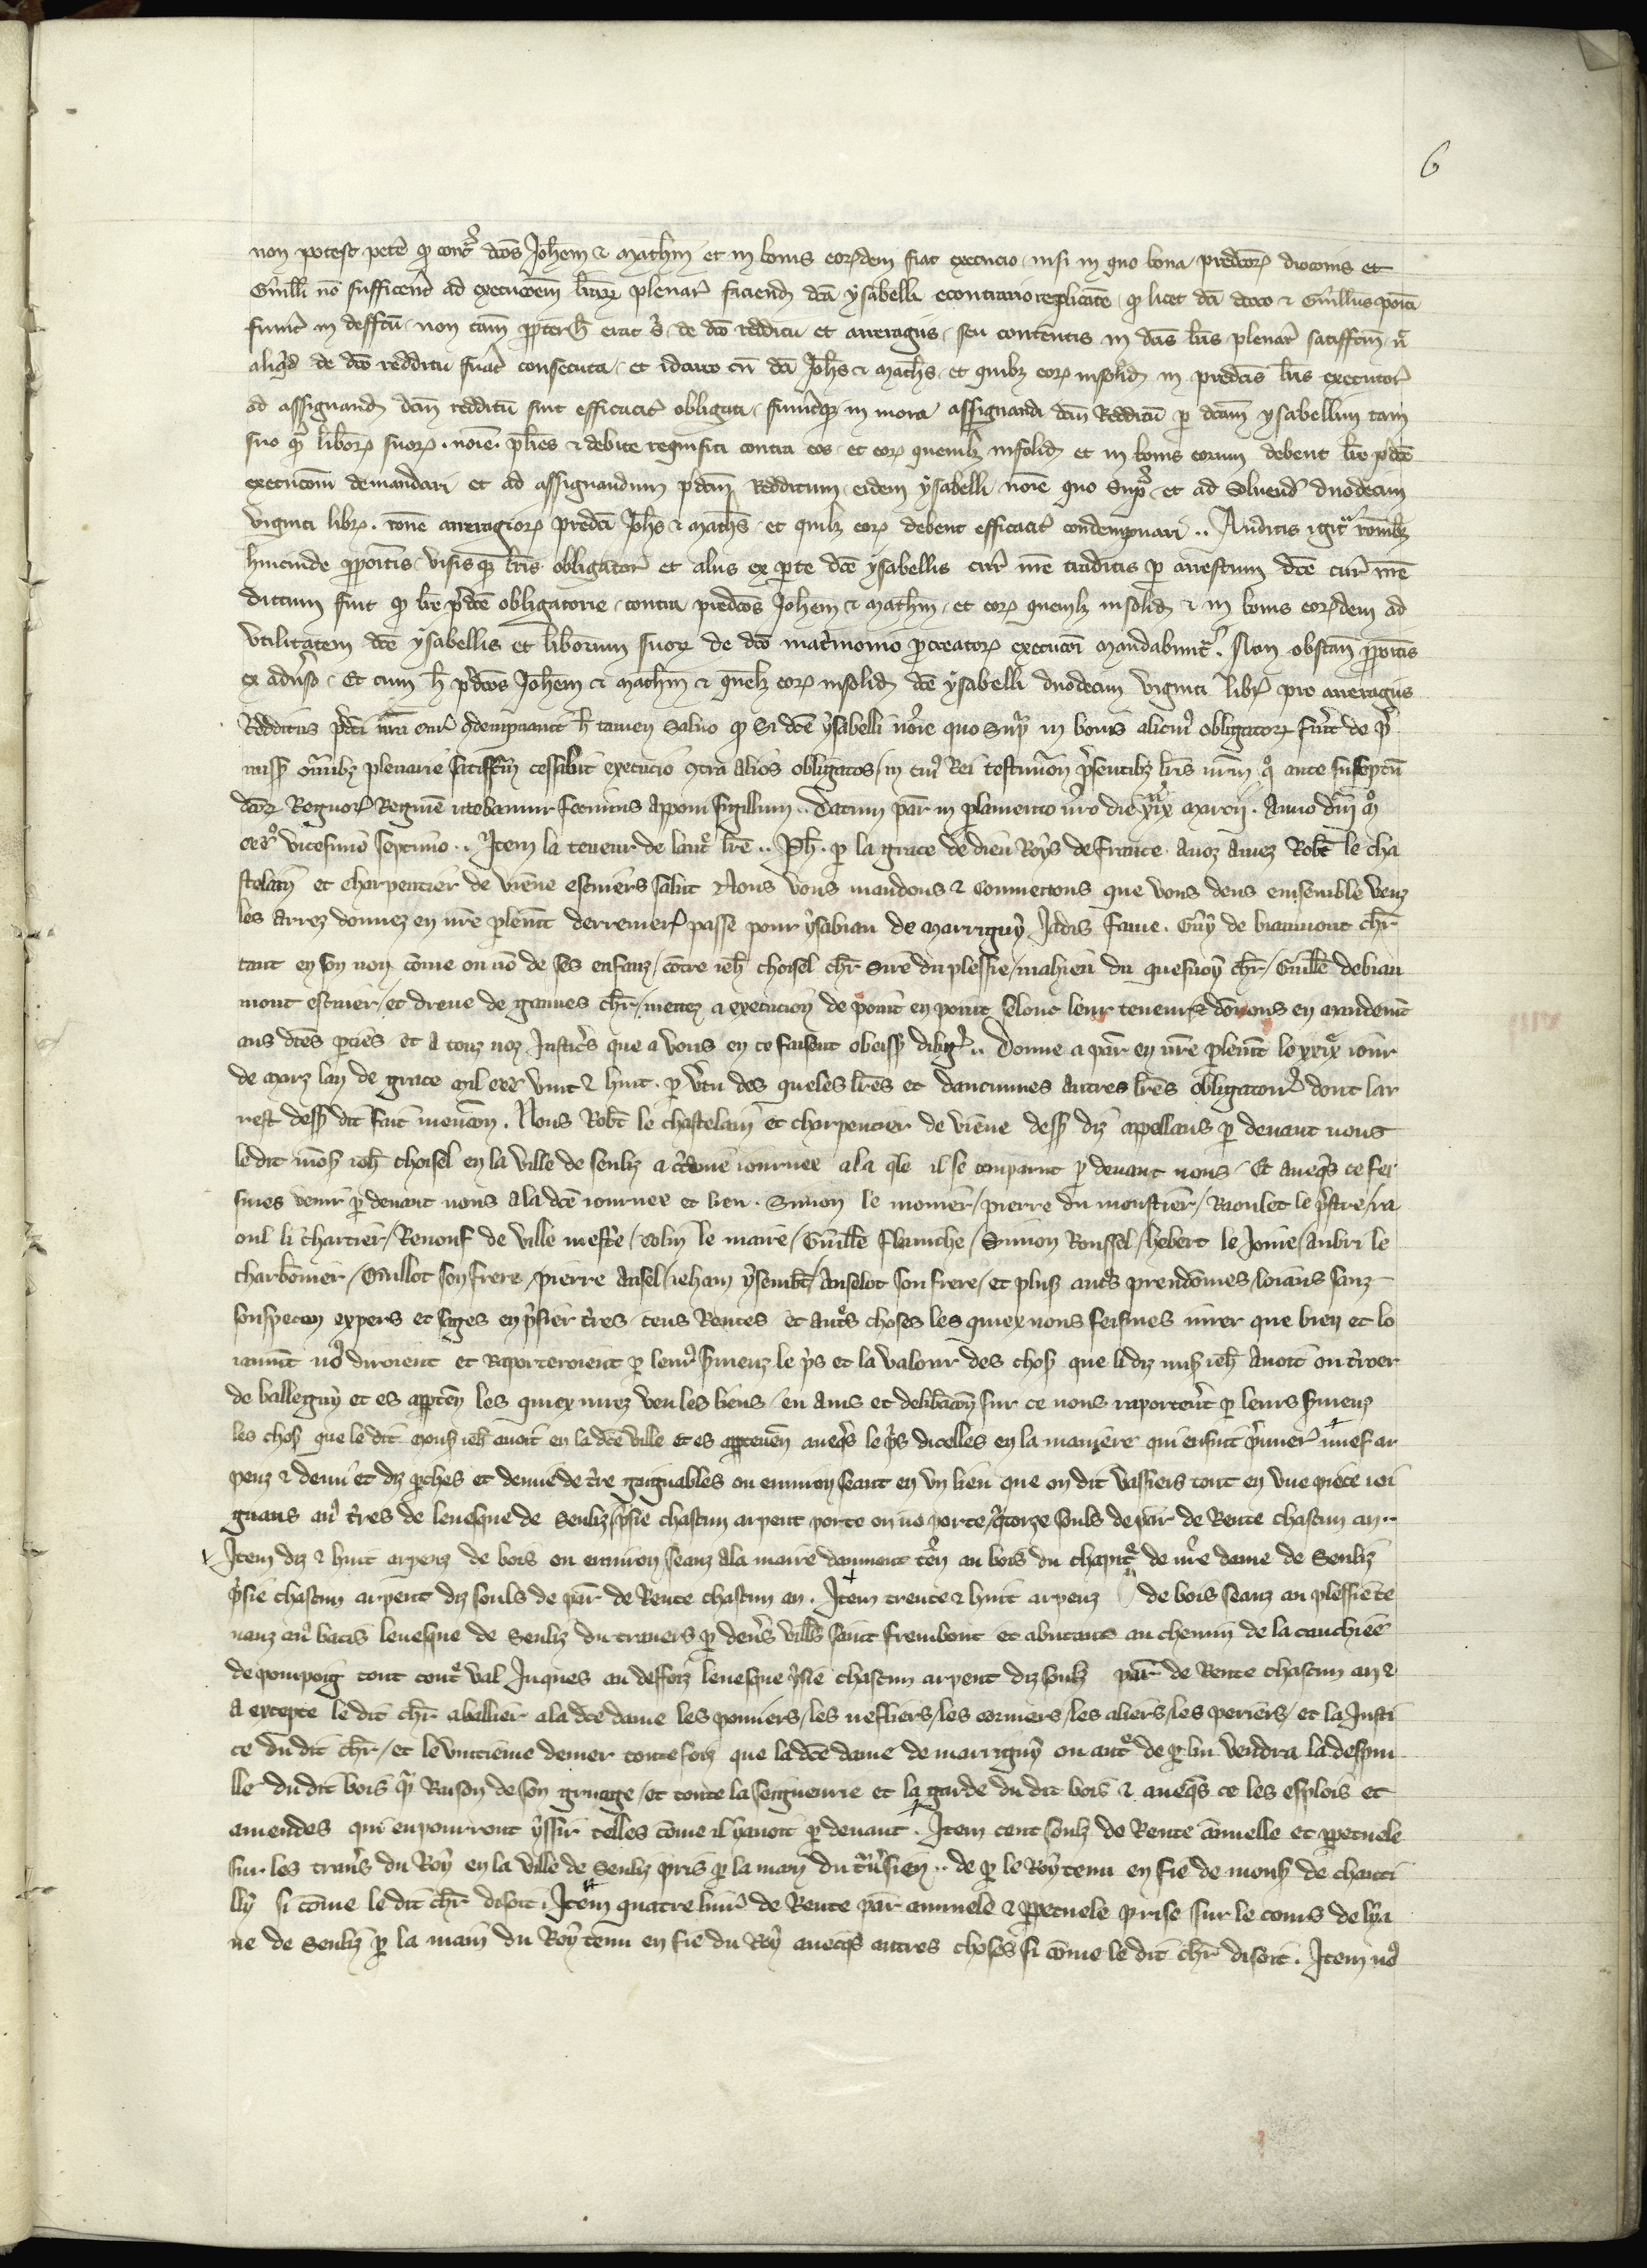 6
non potest petē ꝙ contͣ dcōs Joħem ⁊ Mathm̄ et in bonis eorꝯdem fiat execucio nisi in quo bona predcōꝝ droconis et
Guilłi nō sufficerent ad execucōem lr̄aꝝ plenar̄ faciend dcē ysabelli econtrario replicāte ꝙ licet dcī droco ⁊ Guillūs positi
fuer̄t in deffctū non tam̄ ꝓpter h̄ erat ei de dcō redditu et arreragiis seu contentis in dcīs lr̄is plenar̄ satisfcm̄ nec
aliqͥd de dcō redditu fuāt consecuta et idcirco cū dcī Joħs ⁊ Matħs et quilibꝫ eoꝝ insolid in predcīs lr̄is executor̄
ad assignand dcm̄ redditū sint efficacit̄ obligati fuerītqꝫ in mora assignandi dcm̄ Redditū ꝑ dcam̄ ysabellim tam
suo qͣ liberoꝝ suoꝝ noīe pluries ⁊ debite requisiti contra eos et eoꝝ quemlibꝫ insolid et in bonis eorum debent lr̄e pᵈce
execucōni demandari et ad assignandum pᵈcm̄ Redditum eidem ysabelli noīe quo supᵃ et ad soluend duodecim
viginti libꝝ rōne arreragioꝝ predcī Joħs ⁊ Matħs et quilibꝫ eoꝝ debent efficacit̄ condempnari .. Auditis igitᵘ rōnibꝫ
hincinde ꝓpositis visisqꝫ lr̄is obligator̄ et aliis ex parte dcē ysabellis cur̄ nr̄e traditis ꝑ arrestum dcē cur̄ nr̄e
dictum fuit ꝙ lr̄e pᵈcē obligatorie contra predcōs Joħem ⁊ Mathm̄ et eoꝝ quemlibꝫ insolid ⁊ in bonis eorꝯdem ad
vtilitatem dcē ysabellis et liberorum suoꝝ de dcō matͥmonio ꝓcreatoꝝ execucōi mandabuntᵘ Non obstan̄ ꝓpositis
ex aduˢo Et cum h̄ pᵈcōs Joħem ⁊ Mathm̄ ⁊ quēlibꝫ eoꝝ insolid dcē ysabelli duodecim viginti libꝝ pro arreragiis
Redditus pᵈcī nr̄a cur̄ ꝯdempnauit h̄ tamen saluo ꝙ si dcē ysabelli noīe quo supᵃ in bonis alicuiꝰ obligatoꝝ fuerit de p̄
miss̄ omībꝫ plenarie satisfcm̄ cessabit execucio ꝯtra alios obligatos in cuiꝰ Rei testimōn p̄sentibꝫ lr̄is nr̄m quo ante susceptū
dcōꝝ Regnoꝝ Regimē utebamur fecimus apponi sigillum .. Datum par̄ in plamento nr̄o die xxixᵃ Marcii . Anno dn̄i mᵒ
cccᵒ vicesimo septimo .. Item la teneur de lautᵉ lr̄e .. Pħ. ꝑ la grace de dieu Roys de france Anoz Amez Rob̄t le cha
stelain et charpentier de viēne escuiers salut Nous vous mandons ⁊ commettons que vous deus ensemble venz
les arrez donnez en nr̄e plemt derrenierᵗ passe pour ysabiau de Marriguy Jadis fame . Guy de biaumont chr̄
tant en son nom cōme ou nō de ses enfanz / cōtre ieħ choisel chr̄ sire du plessie / mahieu du quesnoy chr̄ / Guillē de biau
mont escuier / et dreue de gannes chr̄ / mettez a execucion de point en point selonc leur teneurs dōnons en mandemt
aus dctēs ꝑties et a touz noz Justicͤs que a vous en ce faisent obeiss̄ diligͬ .. Donne a par̄ en nr̄e plemt le xxixᵉ iour
de Marz lan de grace mil ccc vint ⁊ huit . ꝑ vͬtu des queles lr̄es et daucunnes autres lr̄es obligatoir̄ dont lar
rest dess̄ dit fait mencōn . Nous Rob̄t le chastelain et charpentier de viēne dess̄ diz appellans ꝑ deuant nous
le dit mōs ieħ choisel en la ville de senliz a cͬtaine iournee a la qle il se comparut ꝑ deuant nous Et aueqͤs ce fei
smes venir ꝑ deuant nous a la dcē iournee et lieu . Simon le monier / pierre du monstier / Raoulet le pͬstre / ra
oul li chartier / Renouf de ville mestͬe / Colin le maire / Guillē flamiche / Simon Roussel / hebert le Jonie / Aubri le
charbonnier / Guillot son frere / pierre Ansel / ieham ysembt / Anselot son frere / et plus̄ autͤs preudōmes / loiaus sanz
souspecon expers et sages en pͥsier tͬres cens Rentes et autͤs choses les quiex nous feismes iurer que bien et lo
iaumt noꝰ diroient et Raporteroient ꝑ leurs sͬmenz le pͥs et la valour des chos̄ que li diz mess̄ ieħ Auoit ou tͬroer
de balleguy et es apptēn les quiex iurez veu les liens / eu auis et delibᵃcōn sur ce nous raportert̄ ꝑ leurs sͬmenz
les chos̄ que le dit Mons̄ ieħ auoit en la dcē ville et es apptenēn aueqͤs le pͥs dicelles en la maniere qui ensuit pͥmierᵗ nuef ar
penz ⁊ demi et diz pͬches et demie de tͬre gaignables ou enuiron seant en vn lieu que on dit vassieus tout en vne piece ioi
gnans auˢ tͬres de leuesque de Senliz pͥsie chascun arpent porte ou nō porte / qᵃtorze soulz de par̄ de Rente chascun an ..
Item diz ⁊ huit arpenz de bois ou enuiron seanz a la maire dammont tēn au bois du chapitͤ de nr̄e dame de Senliz
pͥsie chascun arpent diz souls de par̄ de Rente chascun an . Item trente ⁊ huit arpenz de bois seanz au plessie te
nanz auˢ batis leuesque de Senliz du trauers ꝑ deuͤs villˢ saint frembout et abutans au chemin de la cauchiee
de pompoig tout contͤ val Juques au deffoiz leuesque pͥsie chascun arpent diz soulz par̄ de Rente chascun an ⁊
a excepte le dit chr̄ a baillier a la dcē dame les ponniers / les nefliers / les corniers / les aliers / les periers / et la Justi
ce du dit chr̄ / et le vnitieme denier toutefoiz que la dcē dame de marriguy ou autͤ de ꝑ lui vendra la despui
lle du dit bois ꝑ Raison de son gruage / et toute la seigneurie et la garde du dit bois ⁊ aueqͤs ce les esplois et
amendes qui en pourront yssir telles cōme il y auoit ꝑ deuant . Item cent soulz de Rente annuelle et ꝑpetuele
sur les trauˢ du Roy en la ville de Senliz pris ꝑ la main du tͬuͬsien .. de ꝑ le Roy tenu en fie de mons̄ de chanti
lly si cōme le dit chr̄ disoit . Item quatre liurˢ de Rente par̄ annuele ⁊ ꝑpetuele prise sur le conis de lya
ue de Senliz ꝑ la main du Roy tenu en fie du Roy auecqͤs autres choses si cōme le dit chr̄ disoit . Item noꝰ